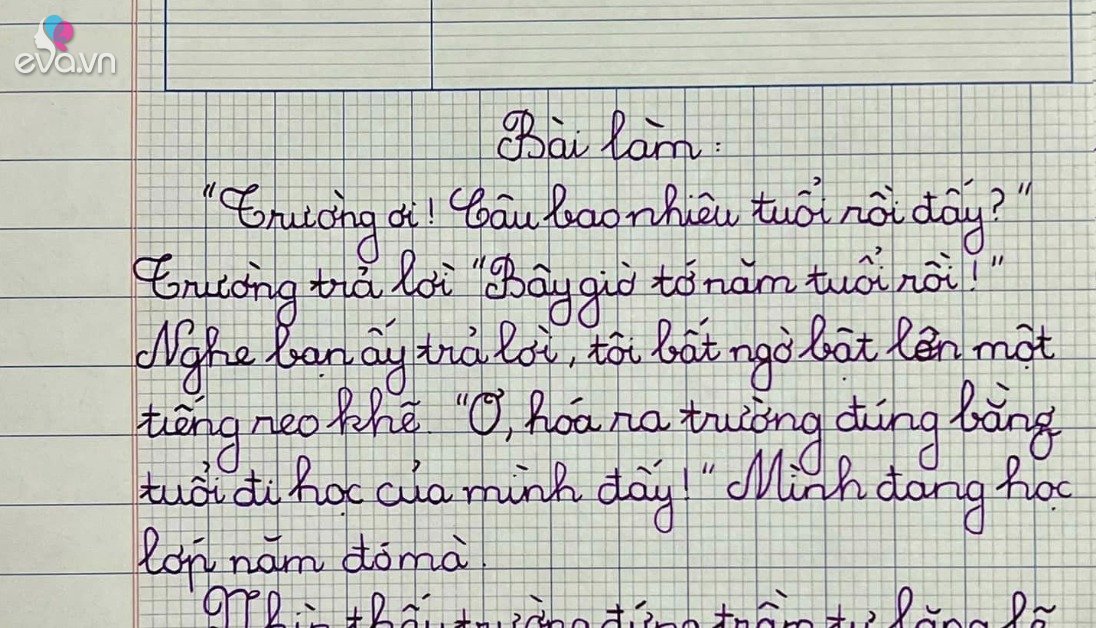 eva.vn
Bài làm:
"Trường ơi! Cậu bao nhiêu tuổi rồi đấy?"
Trường trả lời "Bây giờ tớ năm tuổi rồi!"
Nghe bạn ấy trả lời, tôi bất ngờ bật lên một
tiếng reo khẽ. "Ơ, hóa ra trường đúng bằng
tuổi đi học của mình đấy!" Mình đang học
lớp năm đó mà.
Nhìn thấy trường đứng trầm tư lặng lẽ